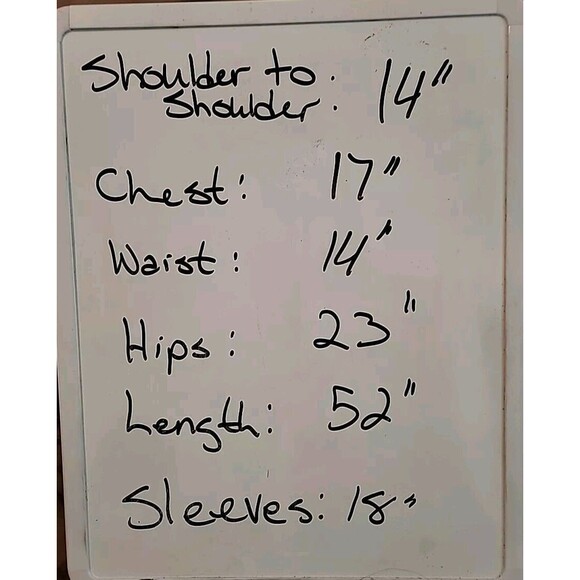 Shoulder to
Shoulder: 14"
Chest: 17"
Waist: 14"
Hips: 23"
Length: 52"
Sleeves: 18"